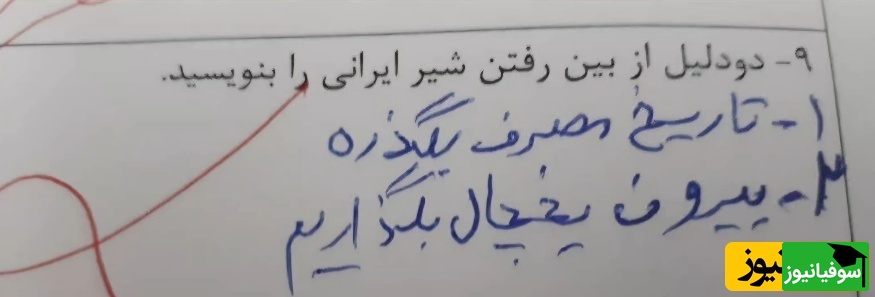 ۹- دودلیل از بین رفتن شیر ایرانی را بنویسید.
۱- تاریخ مصرف بگذره
۲- بیرون یخچال بگذاریم
سوفیانیوز
نیوز